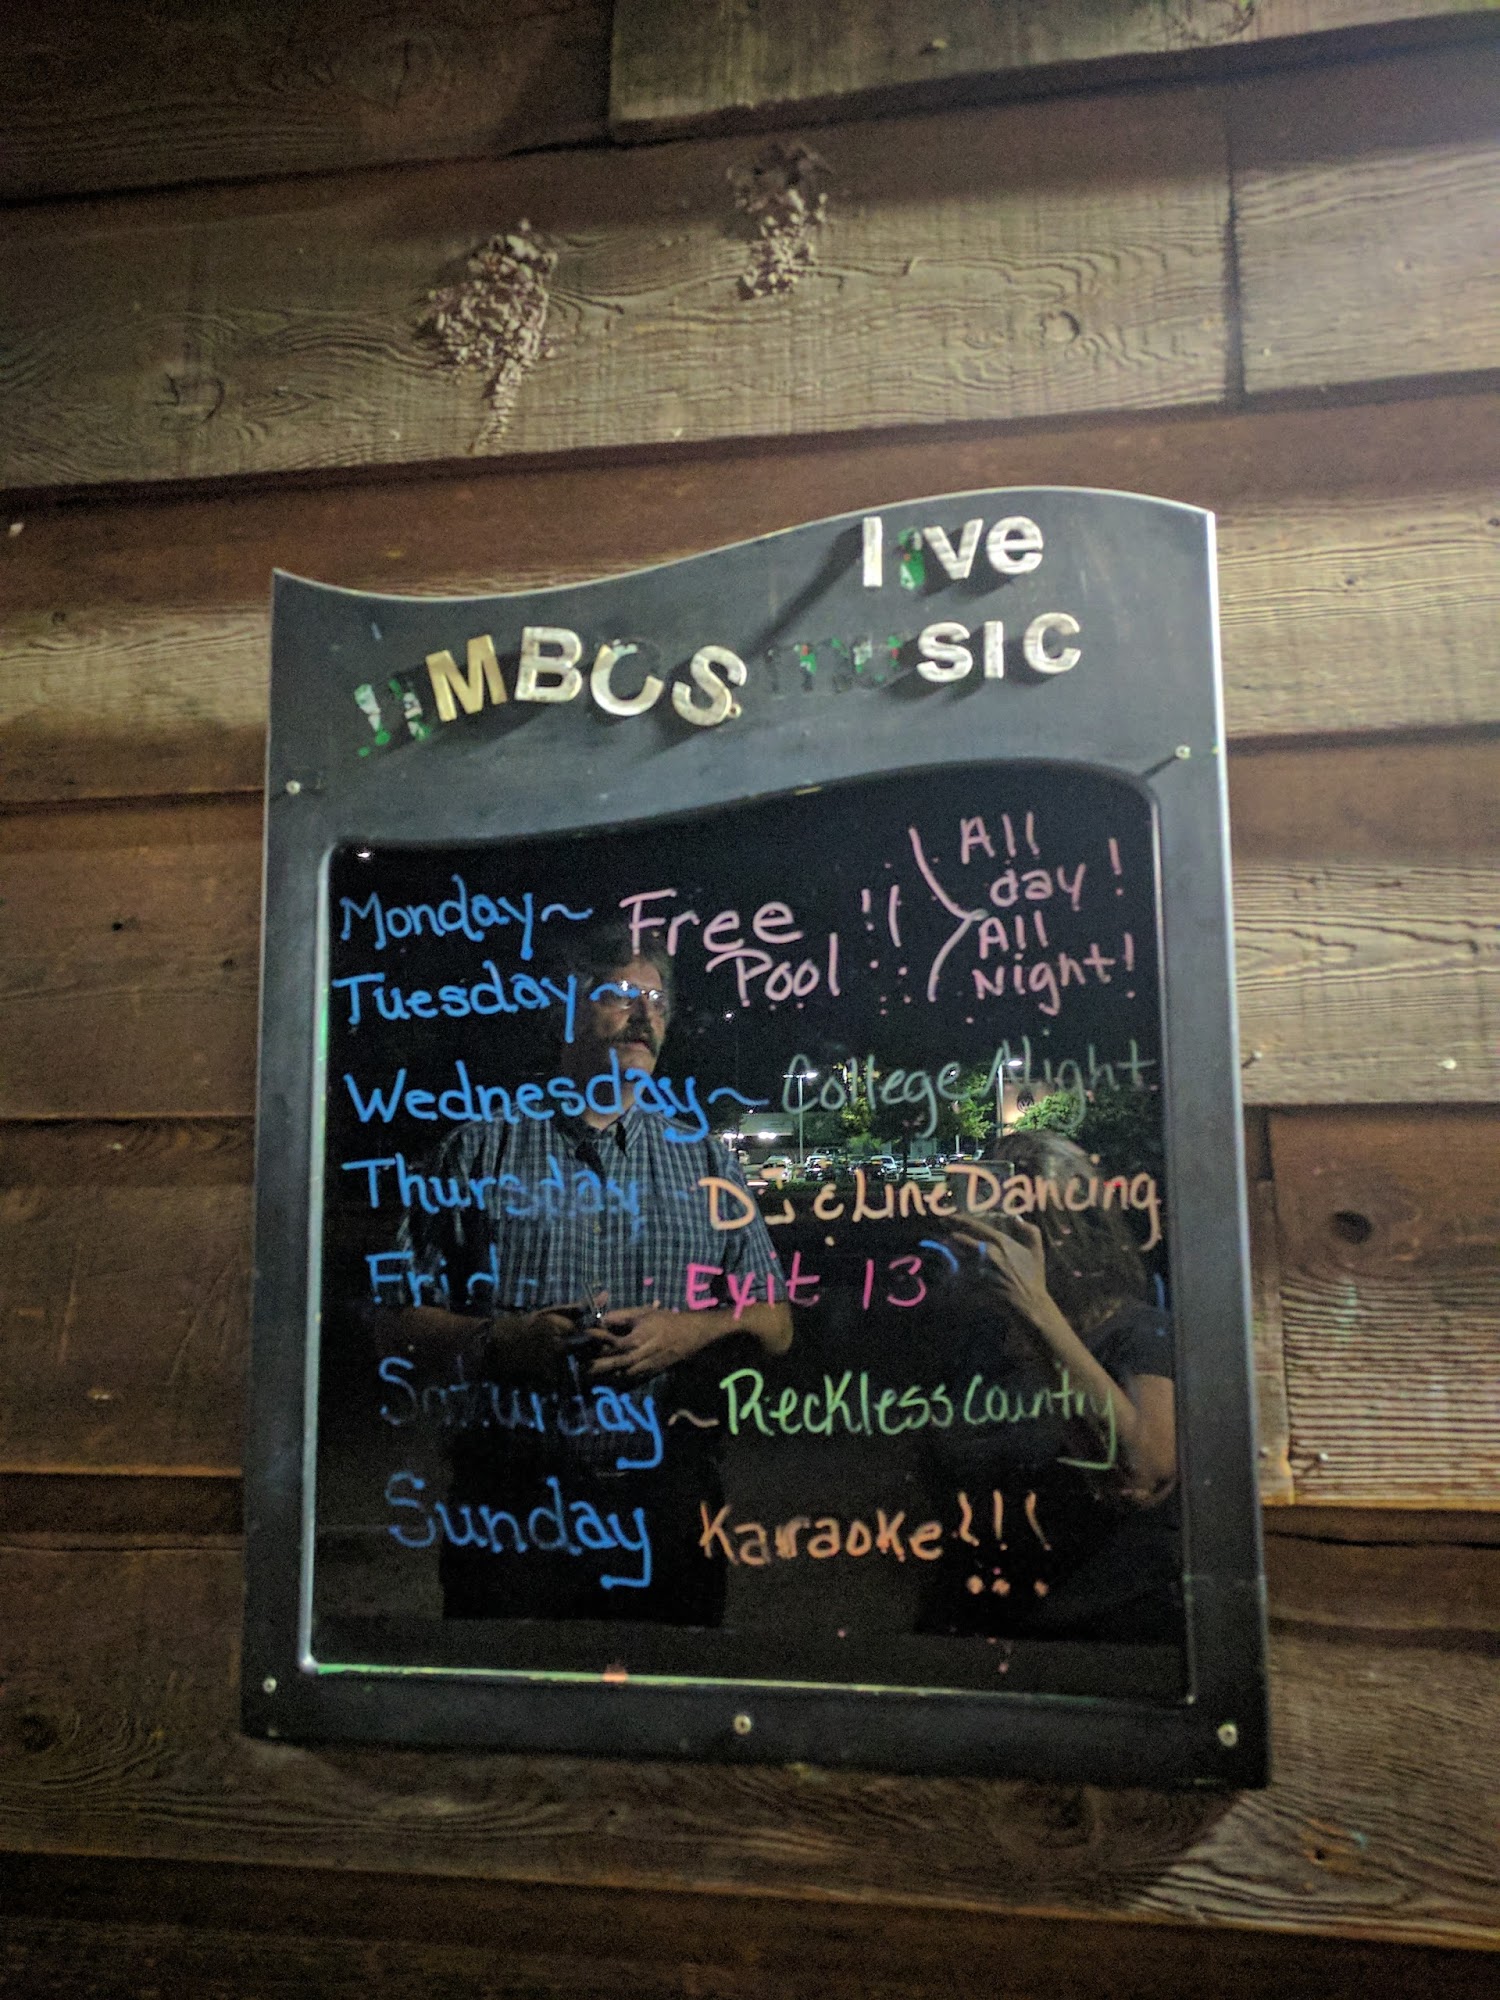 live
MBOS
SIC
Monday~ Free Pool !! All day!
Tuesday~ All Night!
Wednesday~ College Night
Thursday DJ & Line Dancing
Frid Exit 13
Saturday~ Reckless Country
Sunday Karaoke!!!